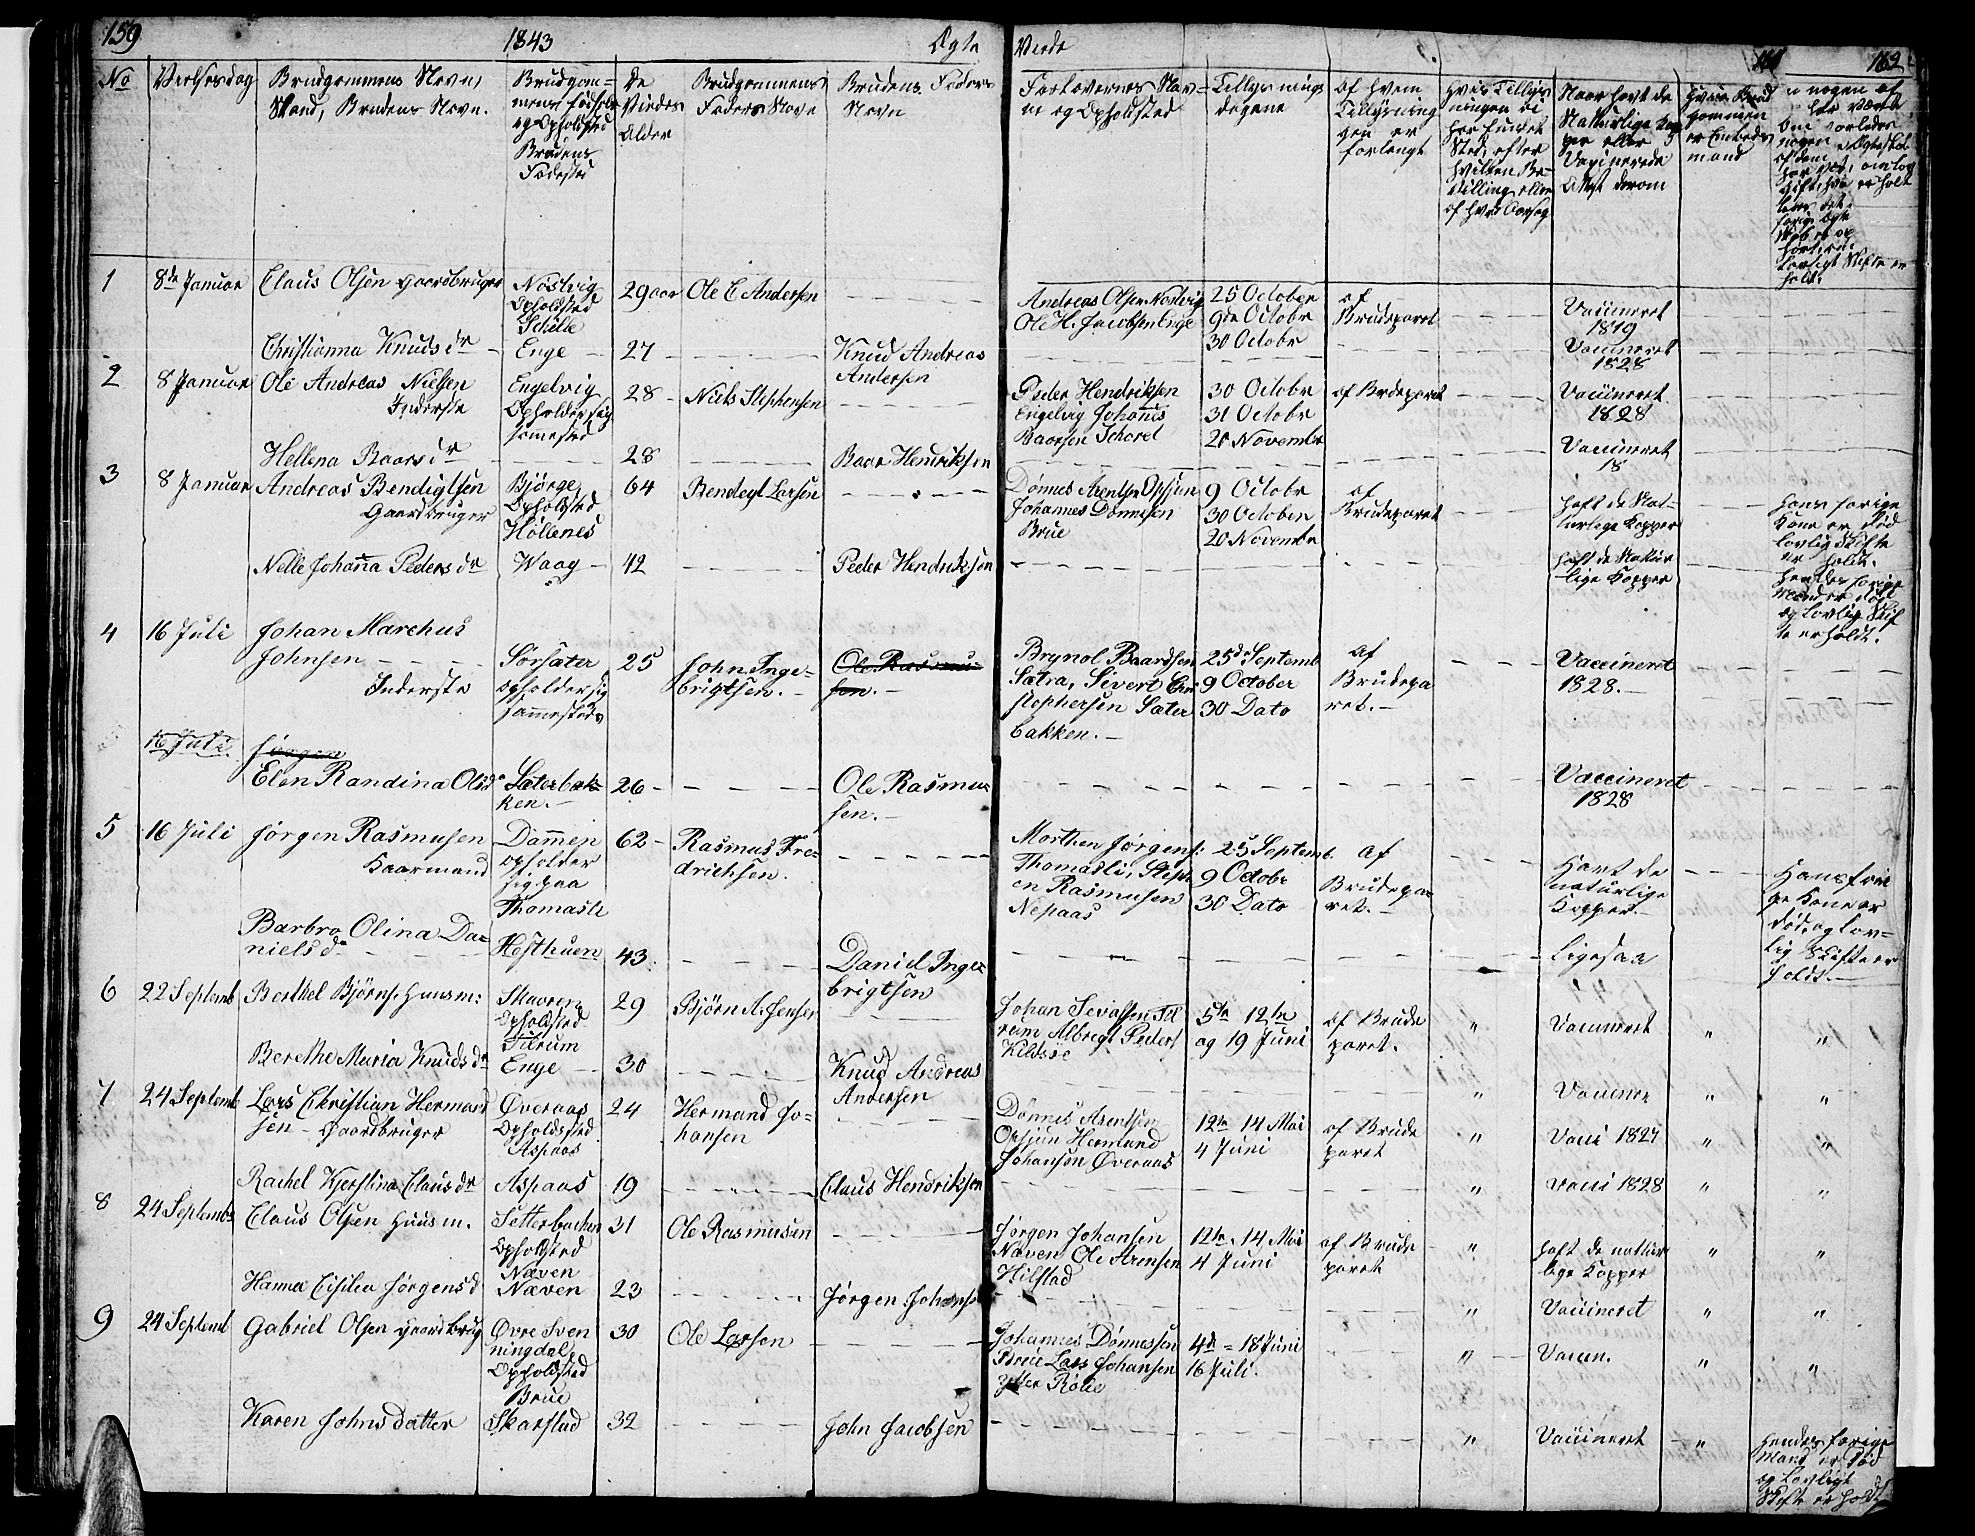 159
1843
Ægte
Viede
162
No
Vielsesdag
Brudgommens Navn,
Stand, Brudens Navn.
Brudgom=
mens fødsels
og Opholdsted
Brudens
Fødested
De
Viedes
Alder
Brudgommens
Faders Navn
Brudens Faders
Navn
Forlovernes Nav-
ne og Opholdsted
Tillysnings
dagene
Af hvem
Tillysning
gen er
forlangt
Hvis Tillys
ningen ei
har fundet
Sted, efter
hvilken Be-
villing eller
af hvad Aarsag
Naar havt de
Naturlige Kop
per eller
Vaxinerede
Attest derom
Hvis Brud
gommen
er Embeds
mand
1
8de Januar
Claus Olsen Gaardbruger
Nøstvig
Opholdsted
29 aar
Ole C Andersen
Andreas Olsen Nøstvig
25 October
af
Vaccineret
1819
Ole H. Jacobsen Enge
9de Octobr
Brudeparet
30 Octobr
Christianna Knudsdr
Enge
27
Knud Andreas
Andersen
Vaccineret
1828
2
8 Januar
Ole Andreas Nielsen
Inderste
Engelvig
Opholder sig
sammested
28
Niels Stephensen
Peder Hendriksen
Engelvig Johannes
Baarsen
30 Octobr
31 Octobr
20 Novembr
af Brudeparet
Vaccineret
1828
Hellena Baarsdr
28
Baar Hendriksen
Vaccineret
18
3
8 Januar
Andreas Bendigtsen
Gaardbruger
Bjørge
Opholdsted
Høllenes
64
Bendegt Larsen
Dønnes Arentsen Opsjøn
Johannes Dønnesen
Brue
9 Octobr
30 October
20 Novembr
af
Brudeparet
haft de Nat-
urlige Kopper
hans forige
Kone er død
lovlig Skifte
er holdt.
Nelle Johanna Pedersdr
Waag
42
Peder Hendriksen
haft de Natur
lige Kopper
hendes forige
Mand er død
og lovlig Skif
te er holdt.
4
16 Juli
Johan Marchus
Johnsen
Inderste
Sørsæter
opholder sig
sammesteds
25
John Inge=
brigtsen.
Ole Rasmus=
sen.
Brynol Baardsen
Sætra, Sivert Chri
stophersen Sæter
bakken.
25de Septemb
9 October
30 Dato
af
Brudepa
ret.
Vaccineret
1828.
16 Juli.
Jørgen
Elen Randina Olsdr
Sæterbak=
ken.
26
Ole Rasmus=
sen.
Vaccineret
1828
5
16 Juli
Jørgen Rasmusen
Kaarmand
Dammen
opholder
sig paa
Thomasli
62
Rasmus Fre=
drichsen.
Morthen Jørgens:
Thomasli, Steph
en Rasmusen
Nepaas
25 Septemb.
9 Octobr
30 Dato
af
Brudepa
ret.
Havt de
naturlige
Kopper.
Hans fori
ge Kone er
død, og lov=
lig Skifte er
holdt.
Barbro Olina Da=
nielsdr
Hesthuen
43.
Daniel Inge=
brigtsen
ligesaa
6
22 Septemb
Berthel Bjørns. Huusm:
Skavren
Opholdsted
Tilrum
29
Bjørn A. Jensen
Johan Sevalsen Til
rum Albregt Peders
Kildsøe
5te 12te
og 19 Juni
af Brude
paret.
"
Vaccineret
"
"
Berethe Maria Knudsdr
Enge
30
Knud Andreas
Andersen
"
Vaccinere
"
"
7
24 Septemb
Lars Christian Hermand
sen - Gaardbruger
Øveraas
Opholdsted
Aspaas
24
Hermand Jo=
hansen
Dønnes Arentsen
Opsjøn Hermand
Johansen Øveraas
12te 14 Mai
4 Juni
af Brude
paret
"
Vacci 1827
"
"
Rachel Kjerstina Clausdr
Aspaas
19
Claus Hendriksen
"
Vacci 1828
"
"
8
24 Septembr
Claus Olsen Huusm.
Setterbacken
Opholdsted
Næven
31
Ole Rasmusen
Jørgen Johansen
Næven Ole Arensen
Hilstad
12te, 14 Mai
4 Juni
af Brude
paret
"
haft de natur
lige Kopper
"
"
Hanna Cisilia Jørgensd
Næven
23
Jørgen Johansen
"
Vaccineret
"
"
9
24 Septemb
Gabriel Olsen Gaardbrug
Øvre Sven
ningdal
Opholdsted
Brue
30
Ole Larsen
Johannes Dønnessen
Brue Lars Johansen
Ytter Rølie
4de = 18 Juni
16 Juli.
"
Vaccin.
"
"
Karen Johnsdatter
Skarstad
32
John Jacobsen
"
Vaccineret
"
Hendes forige
Mand er død
og Lovligt
Skifte er holdt